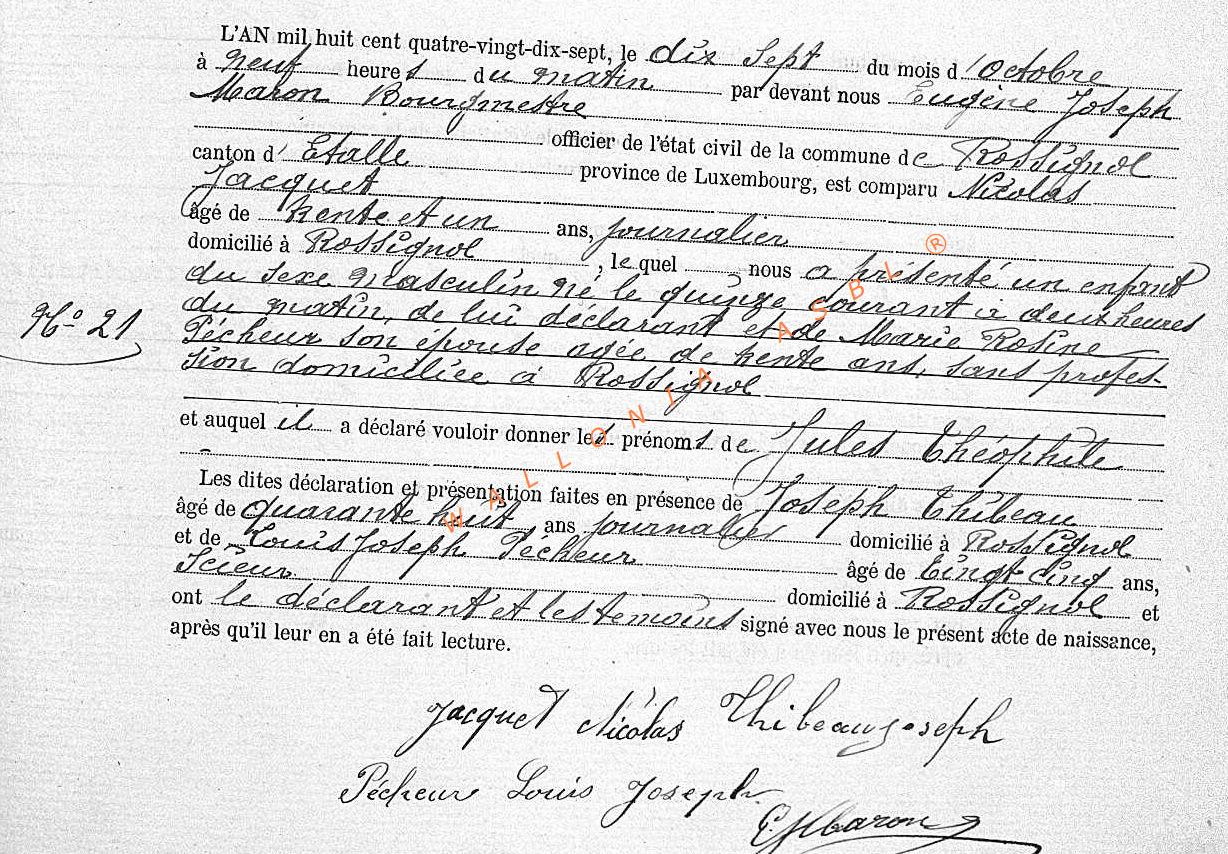 L'AN mil huit cent quatre-vingt-dix-sept, le dix sept du mois d'Octobre
à neuf heures du matin par devant nous Eugène Joseph
Maron Bourgmestre
officier de l'état civil de la commune de Rossignol
canton d'Etalle province de Luxembourg, est comparu Nicolas
Jacquet
âgé de trente et un ans, journalier
domicilié à Rossignol, lequel nous a présenté un enfant
du sexe masculin né le quinze courant à deux heures
du matin, de lui déclarant et de Marie Rosine
N° 21
Pécheur son épouse agée de trente ans, sans profes-
sion domiciliée à Rossignol
et auquel il a déclaré vouloir donner les prénoms de Jules Théophile
Les dites déclaration et présentation faites en présence de Joseph Thibeau
âgé de quarante huit, ans journalier domicilié à Rossignol
et de Louis Joseph Pécheur âgé de vingt cinq ans,
Scieur domicilié à Rossignol et
ont le déclarant et les témoins signé avec nous le présent acte de naissance,
après qu'il leur en a été fait lecture.
WALLONIA ASBL ®
Jacquet Nicolas Thibeau Joseph
Pécheur Louis Joseph
E J Maron